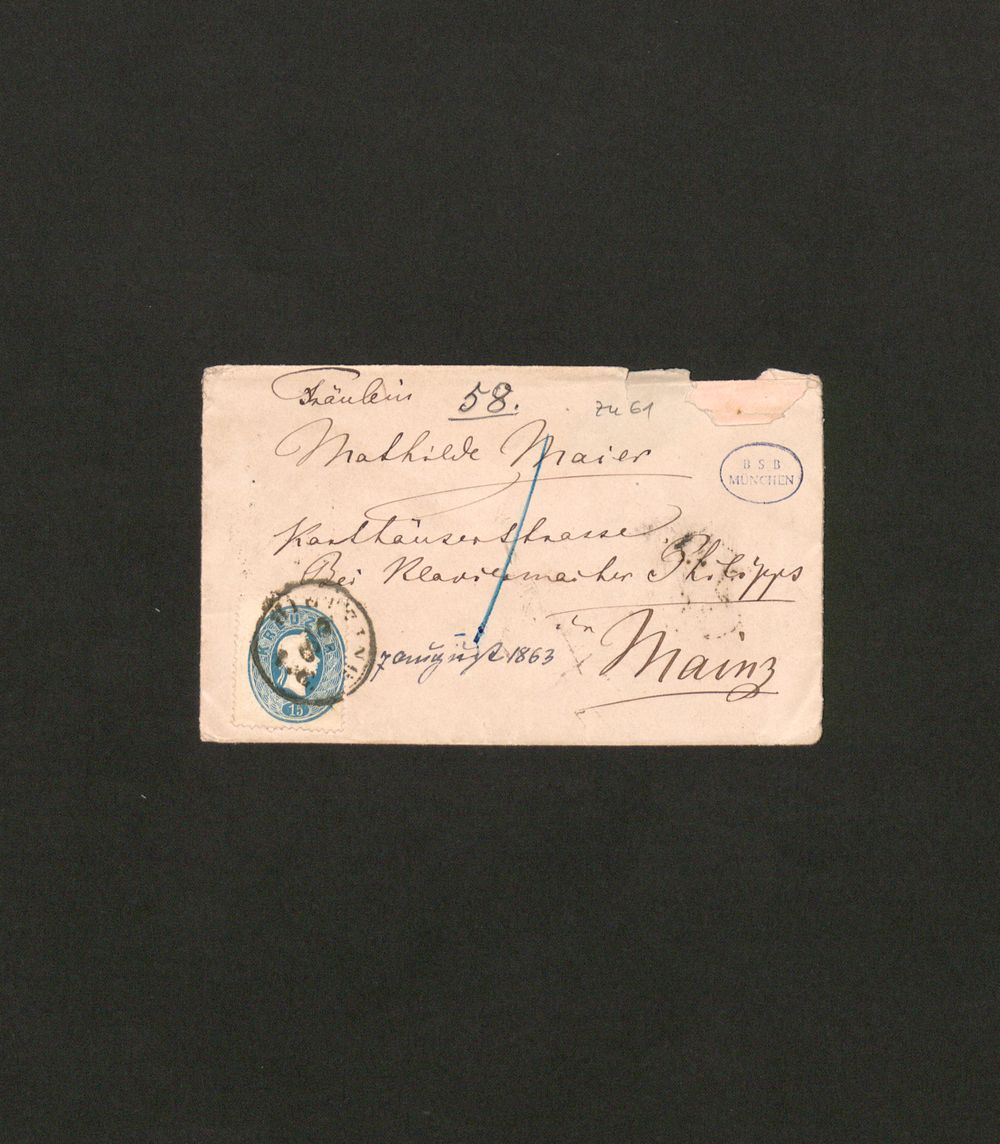 Fräulein
58.
zu 61
Mathilde Maier
B S B
MÜNCHEN
Karthäuserstrasse
Bei Klaviermacher Philipps
in
Mainz
7 august 1863
KREUZER
15